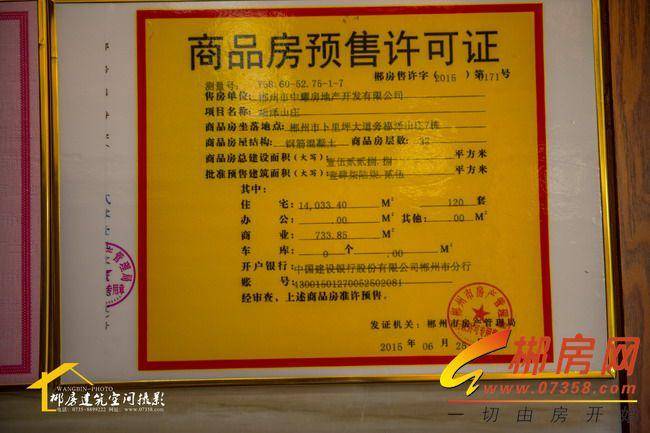 商品房预售许可证
郴房售许字(2015)第171号
测量号: YSB.60-52.75-1-7
售房单位: 郴州市中耀房地产开发有限公司
项目名称: 山庄
商品房坐落地点: 郴州市卜里坪大道旁 山庄7栋
商品房屋结构: 钢筋混凝土 商品房层数: 32
商品房总建设面积(大写): 壹伍贰贰捌.捌 平方米
批准预售建筑面积(大写): 壹肆柒陆柒.贰伍 平方米
其中:
住 宅: 14,033.40 M² 120 套
办 公: .00 M² 其他: .00 M²
商 业: 733.85 M²
车 库: 0 个 .00 M²
开户银行: 中国建设银行股份有限公司郴州市分行
账 号: 43001501270052502081
经审查、上述商品房准许预售。
发证机关: 郴州市房产管理局
2015 年 06 月 25
郴州市房产管理局
管理局
专用章
WANGBIN-PHOTO
郴房建筑空间摄影
电话: 0735-8899222 网址: www.07358.com
郴房网
www.07358.com
一切由房开始